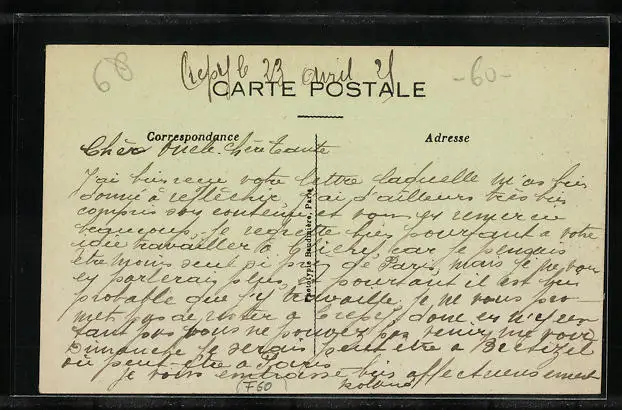 68
Crepy le 23 avril 25
-60-
CARTE POSTALE
Correspondance
Adresse
Cher Oncle. chère tante
J'ai bien reçu votre lettre laquelle m'as fait
donné à réflechir, j'ai d'ailleurs très bien
compris son contenu et vous en remercie
beaucoup, je regrette pourtant à votre
idée travailler à car je pensais
être moins seul si près de Paris, mais je ne vous
en parlerais plus, pourtant il est
probable que j'y travaille je ne vous pro
met pas de rester à Crepy donc en
tant pas vous ne pouvez pas venir me voir
Dimanche je serais peut être à
ou peut-être à Paris
je vous embrasse bien affectueusement
Roland
(F60)
Phototypie Baudinière, Paris